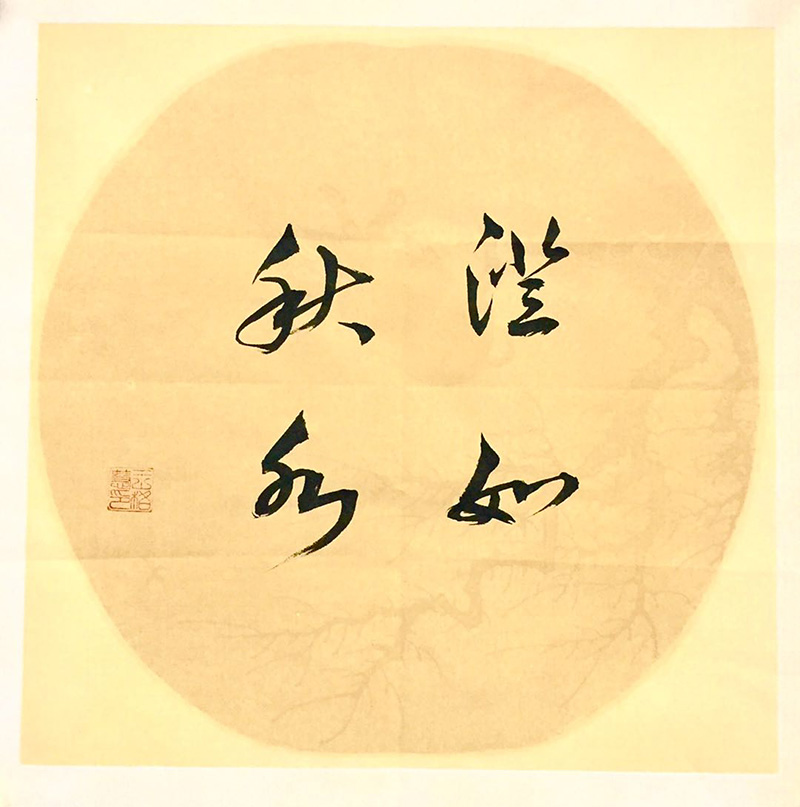 澄如
秋水